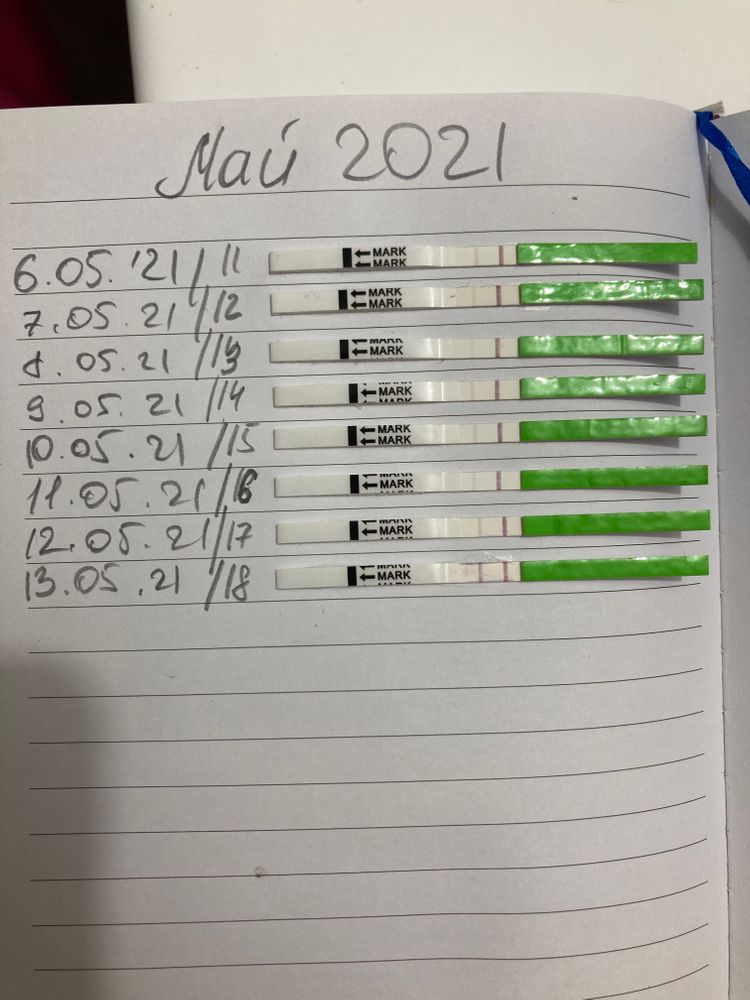 Май 2021
6.05.'21/11 ←MARK ←MARK
7.05.21/12 ←MARK ←MARK
8.05.21/13 ←MARK ←MARK
9.05.21/14 ←MARK ←MARK
10.05.21/15 ←MARK ←MARK
11.05.21/16 ←MARK ←MARK
12.05.21/17 ←MARK ←MARK
13.05.21/18 ←MARK ←MARK